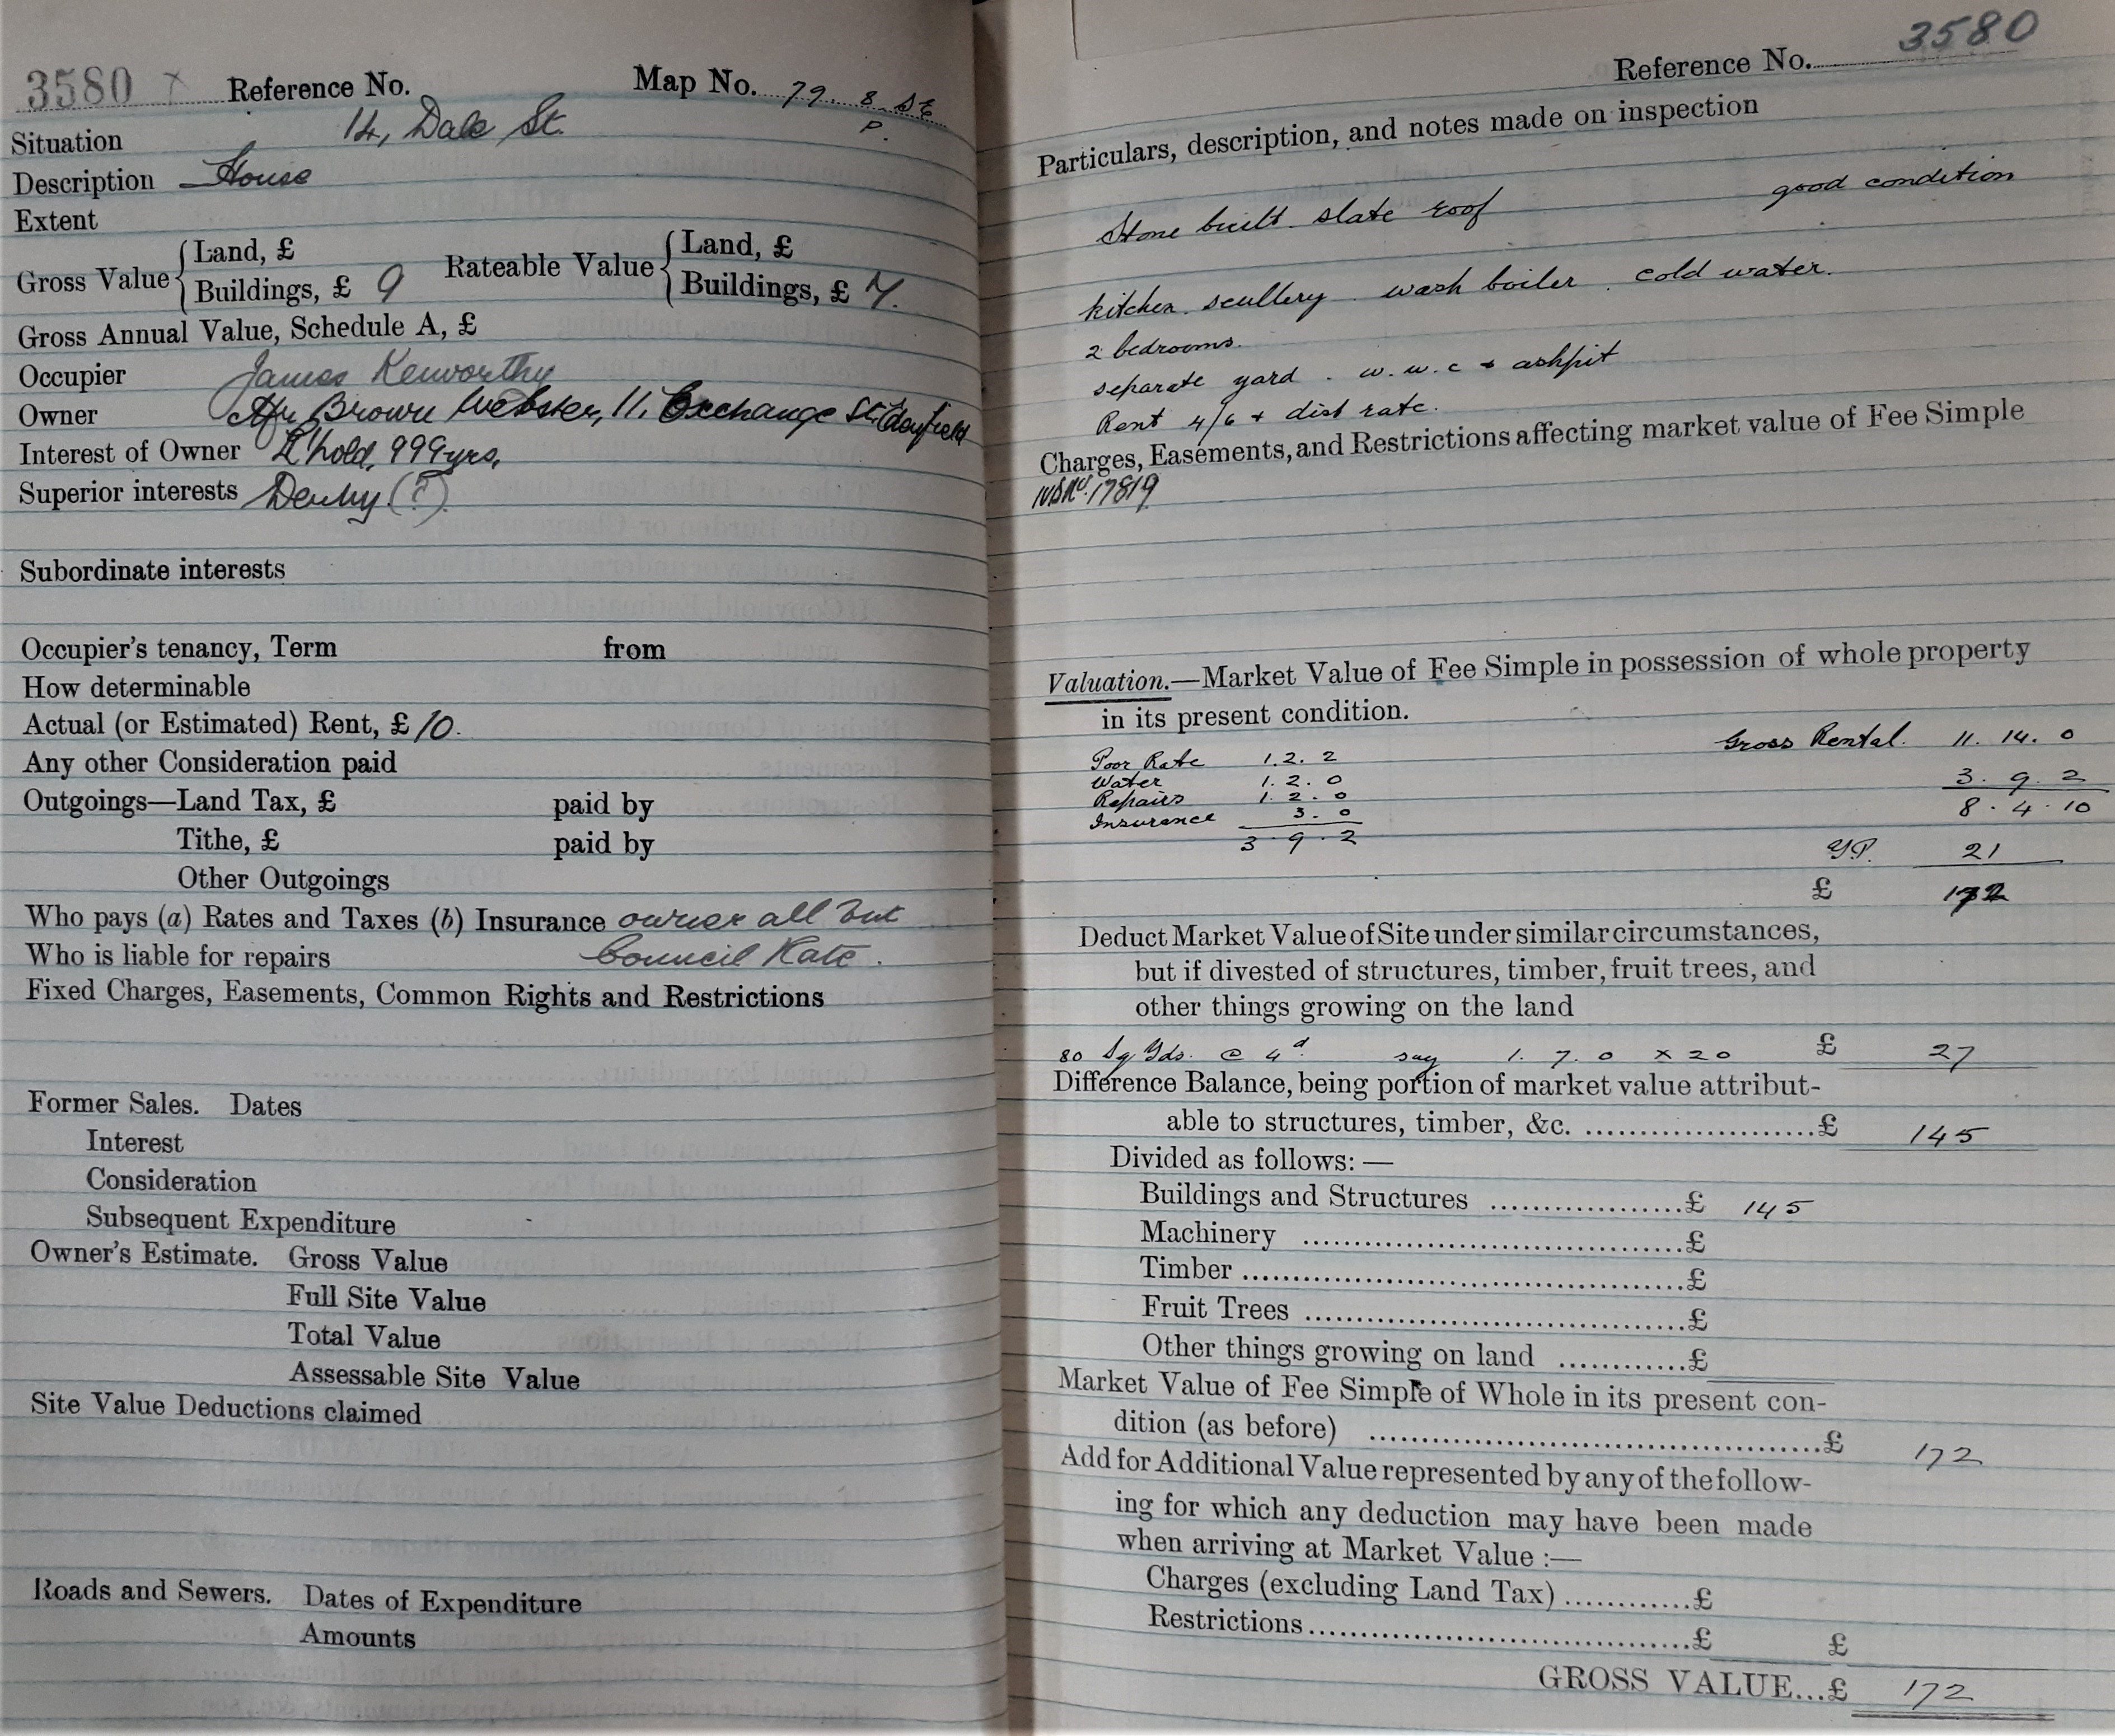 3580 x Reference No. Map No. 79. 8. SE
P.
Situation 14, Dale St.
Description House
Extent
Gross Value { Land, £ Rateable Value { Land, £
Buildings, £ 9 Buildings, £ 7.
Gross Annual Value, Schedule A, £
Occupier James Kenworthy
Owner Brown Webster, 11, Exchange St.
Interest of Owner L'hold, 999 yrs,
Superior interests Denby (?)
Subordinate interests
Occupier's tenancy, Term from
How determinable
Actual (or Estimated) Rent, £ 10.
Any other Consideration paid
Outgoings—Land Tax, £ paid by
Tithe, £ paid by
Other Outgoings
Who pays (a) Rates and Taxes (b) Insurance owner all but
Who is liable for repairs Council Rate.
Fixed Charges, Easements, Common Rights and Restrictions
Former Sales. Dates
Interest
Consideration
Subsequent Expenditure
Owner's Estimate. Gross Value
Full Site Value
Total Value
Assessable Site Value
Site Value Deductions claimed
Roads and Sewers. Dates of Expenditure
Amounts
Reference No. 3580
Particulars, description, and notes made on inspection
good condition
Stone built. slate roof
kitchen. scullery. wash boiler. cold water.
2 bedrooms.
separate yard. w.w.c & ashpit
Rent 4/6 + dist rate.
Charges, Easements, and Restrictions affecting market value of Fee Simple
17819
Valuation.—Market Value of Fee Simple in possession of whole property
in its present condition.
Gross Rental. 11. 14. 0
Poor Rate 1. 2. 2
Water 1. 2. 0 3. 9. 2
Repairs 1. 2. 0 8. 4. 10
Insurance 3. 0
3. 9. 2
Y.P. 21
£ 172
Deduct Market Value of Site under similar circumstances,
but if divested of structures, timber, fruit trees, and
other things growing on the land
80 Sq Yds. @ 4d. say 1. 7. 0 x 20 £ 27
Difference Balance, being portion of market value attribut-
able to structures, timber, &c. ......................£ 145
Divided as follows: —
Buildings and Structures ..................£ 145
Machinery ....................................£
Timber .........................................£
Fruit Trees ....................................£
Other things growing on land ............£
Market Value of Fee Simple of Whole in its present con-
dition (as before) ..........................................£ 172
Add for Additional Value represented by any of the follow-
ing for which any deduction may have been made
when arriving at Market Value :—
Charges (excluding Land Tax) ............£
Restrictions....................................£ £
GROSS VALUE...£ 172